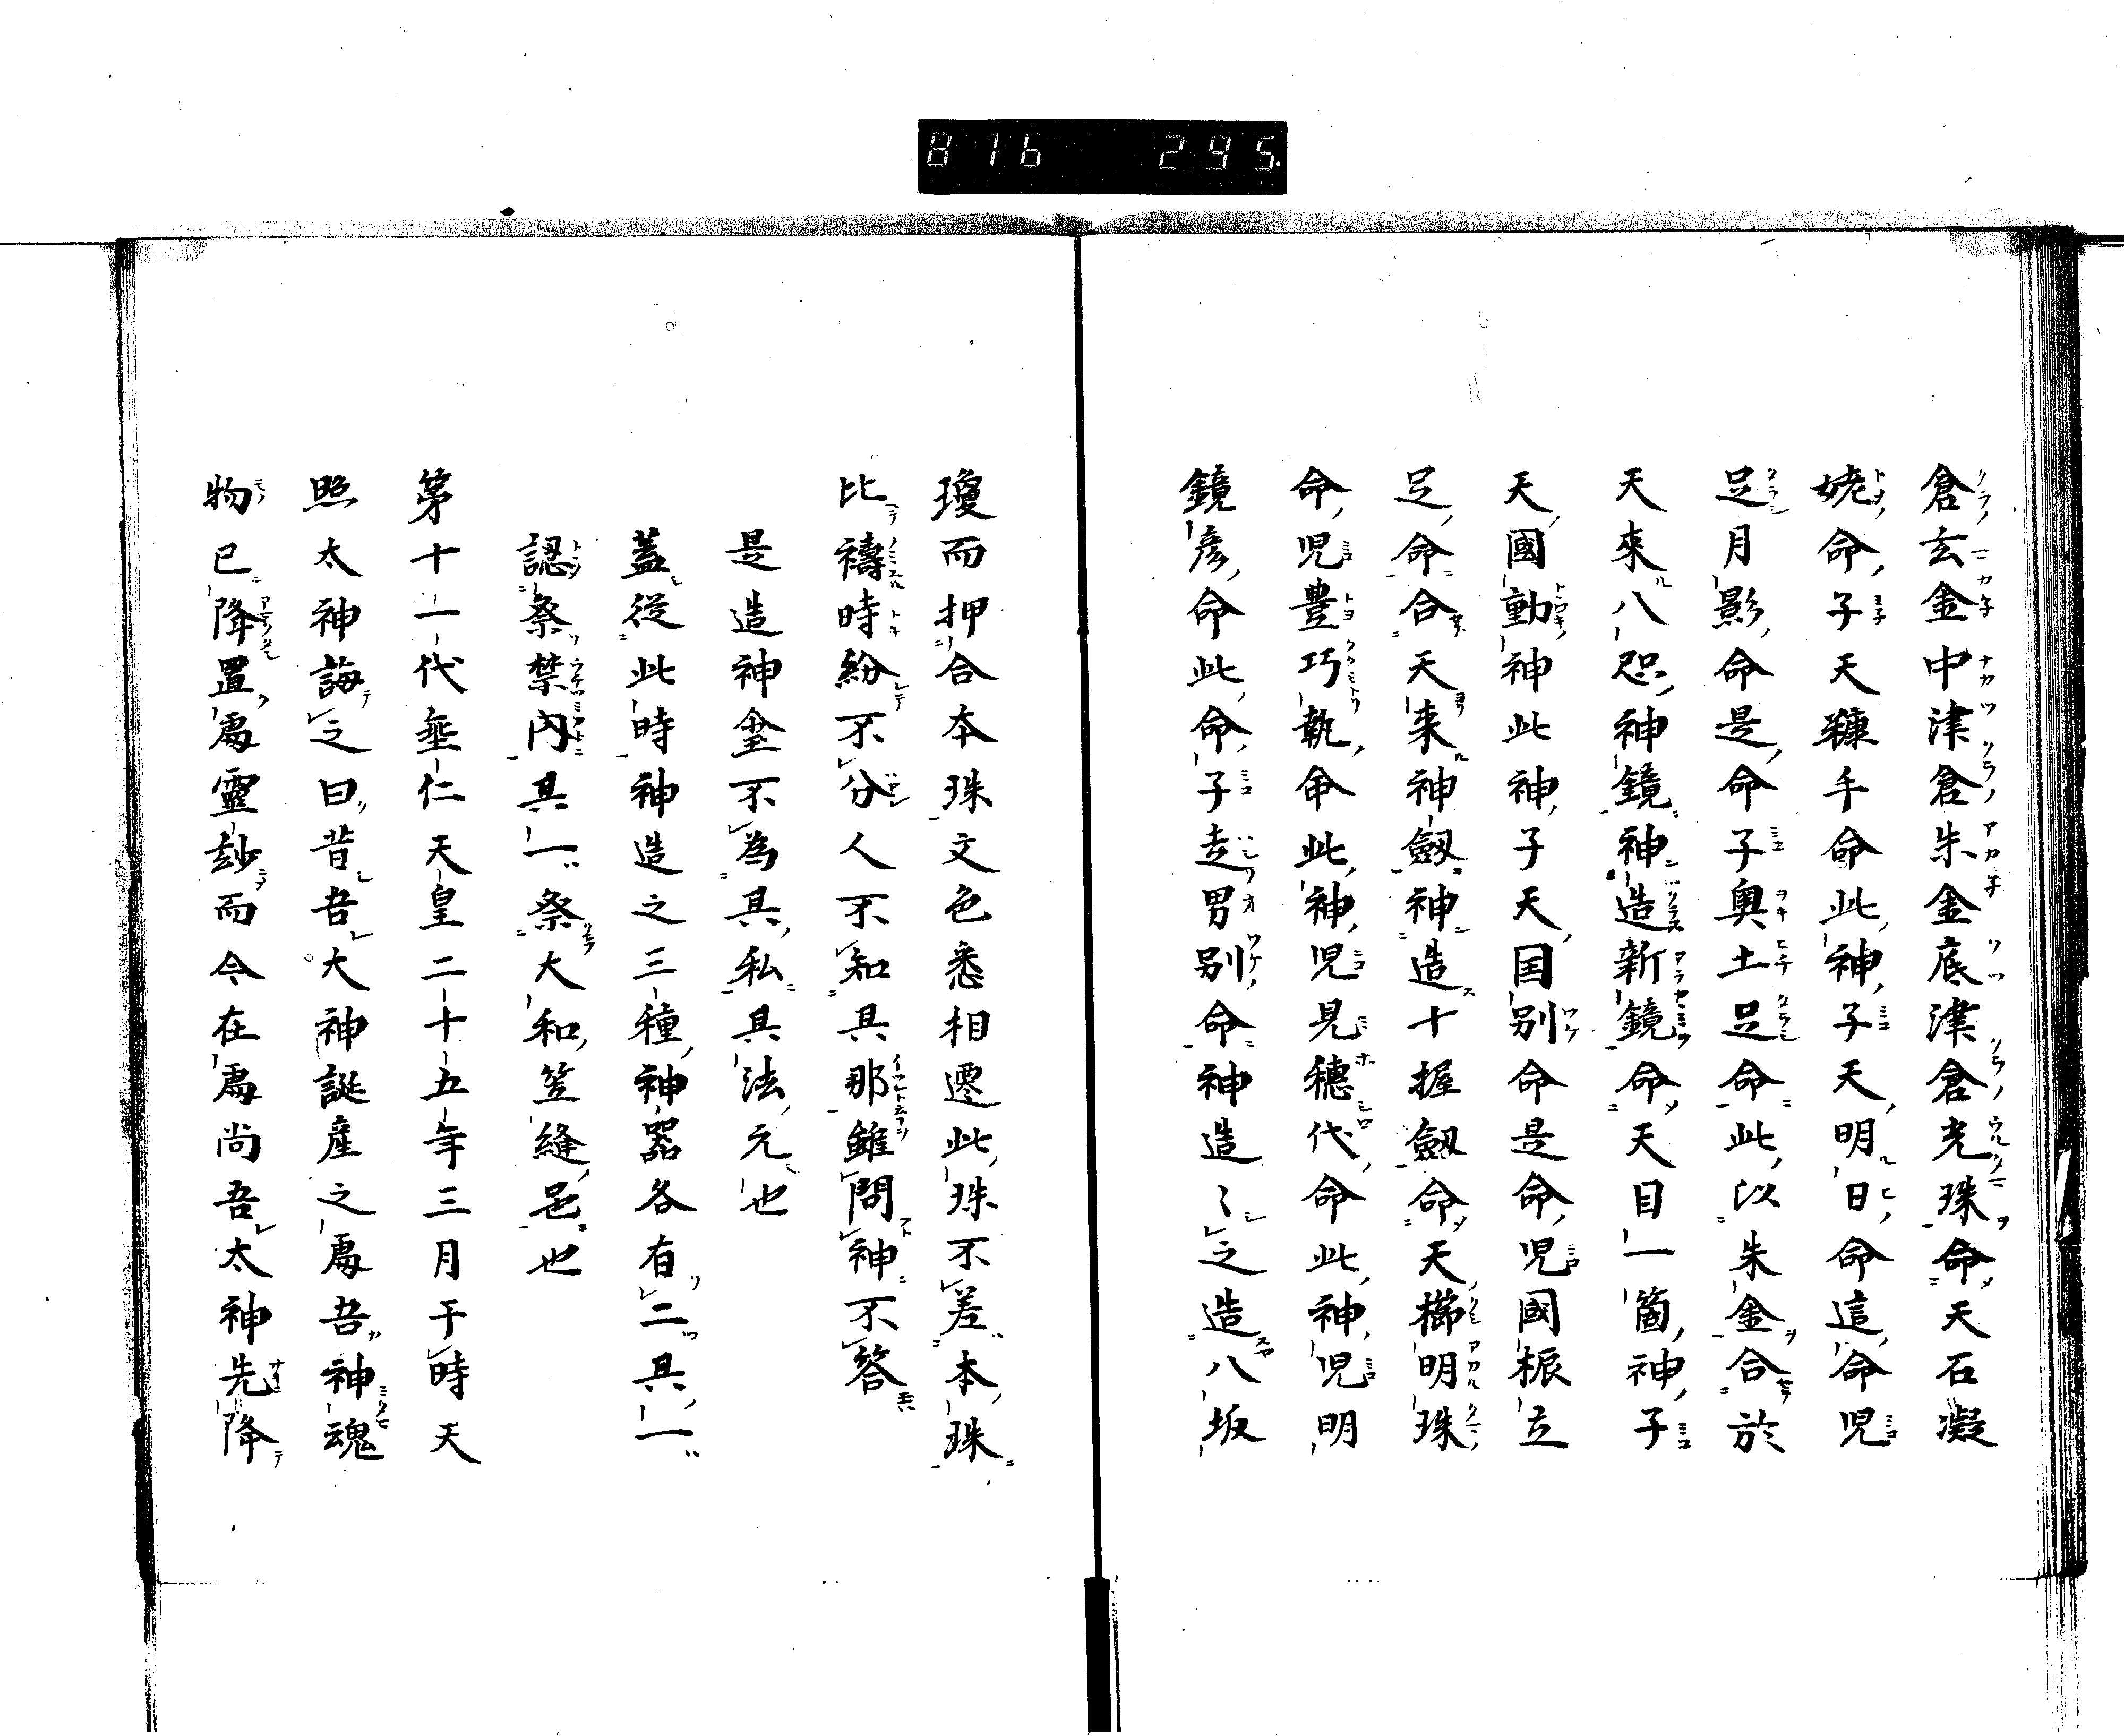 816 295.
倉玄金中津倉朱金底津倉光珠命天石凝
姥命子天糠手命此神子天明日命這命児
足月影命是命子奥土足命此以朱金合於
天来八咫神鏡神造新鏡命天目一箇神子
天國動神此神子天国別命是命児國振立
足命合天来神劔神造十握劔命天櫛明珠
命児豊巧執命此神児見穗代命此神児明
鏡彦命此命子走男別命神造〻之造八坂
瓊而押合本珠文色悉相遷此珠不差本珠
比禱時紛不分人不知其那雖問神不答
是造神璽不為其私其法元也
蓋從此時神造之三種神器各有二具一
認祭禁内其一祭大和笠縫邑也
第十一代垂仁天皇二十五年三月于時天
照太神誨之曰昔吾大神誕産之處吾神魂
物已降置處靈玅而今在處尚吾太神先降